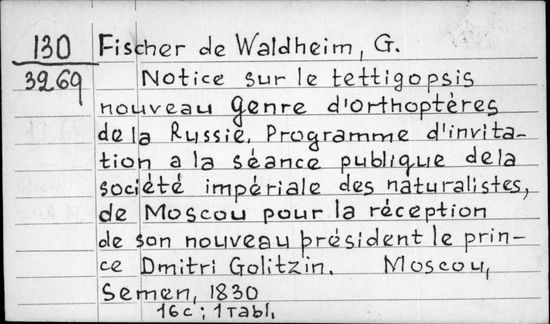 130 Fischer de Waldheim, G.
3969 Notice sur le tettigopsis
nouveau genre d'orthoptères
de la Russie. Programme d'invita-
tion a la séance publique dela
société impériale des naturalistes,
de Moscou pour la réception
de son nouveau président le prin-
ce Dmitri Golitzin. Moscou,
Semen, 1830
16c; 1табл,